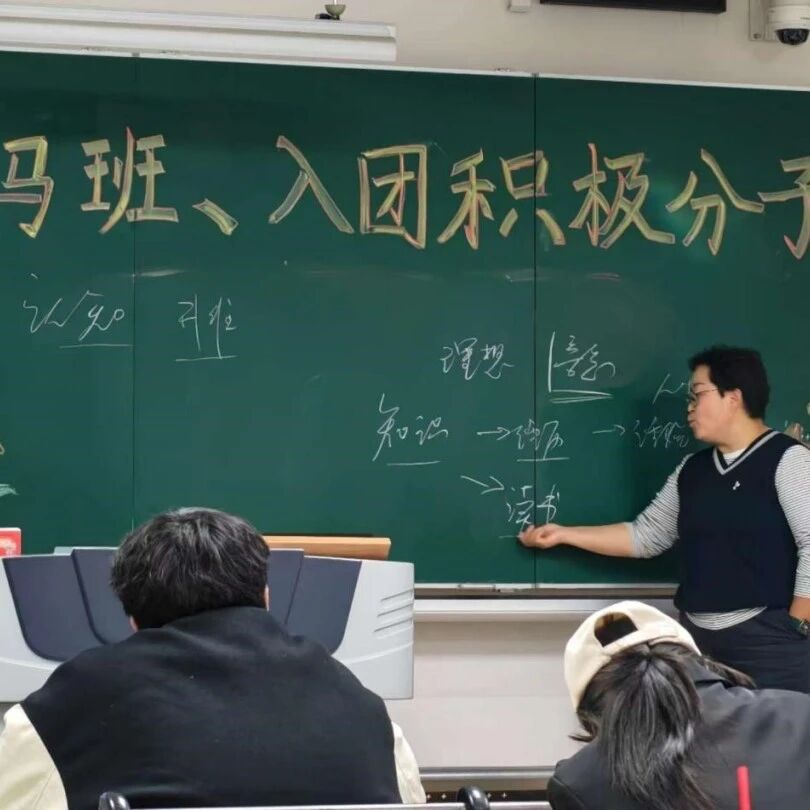 马班、入团积极分子
认知 升维
理想 信念
知识 → 经历 →
→ 读书